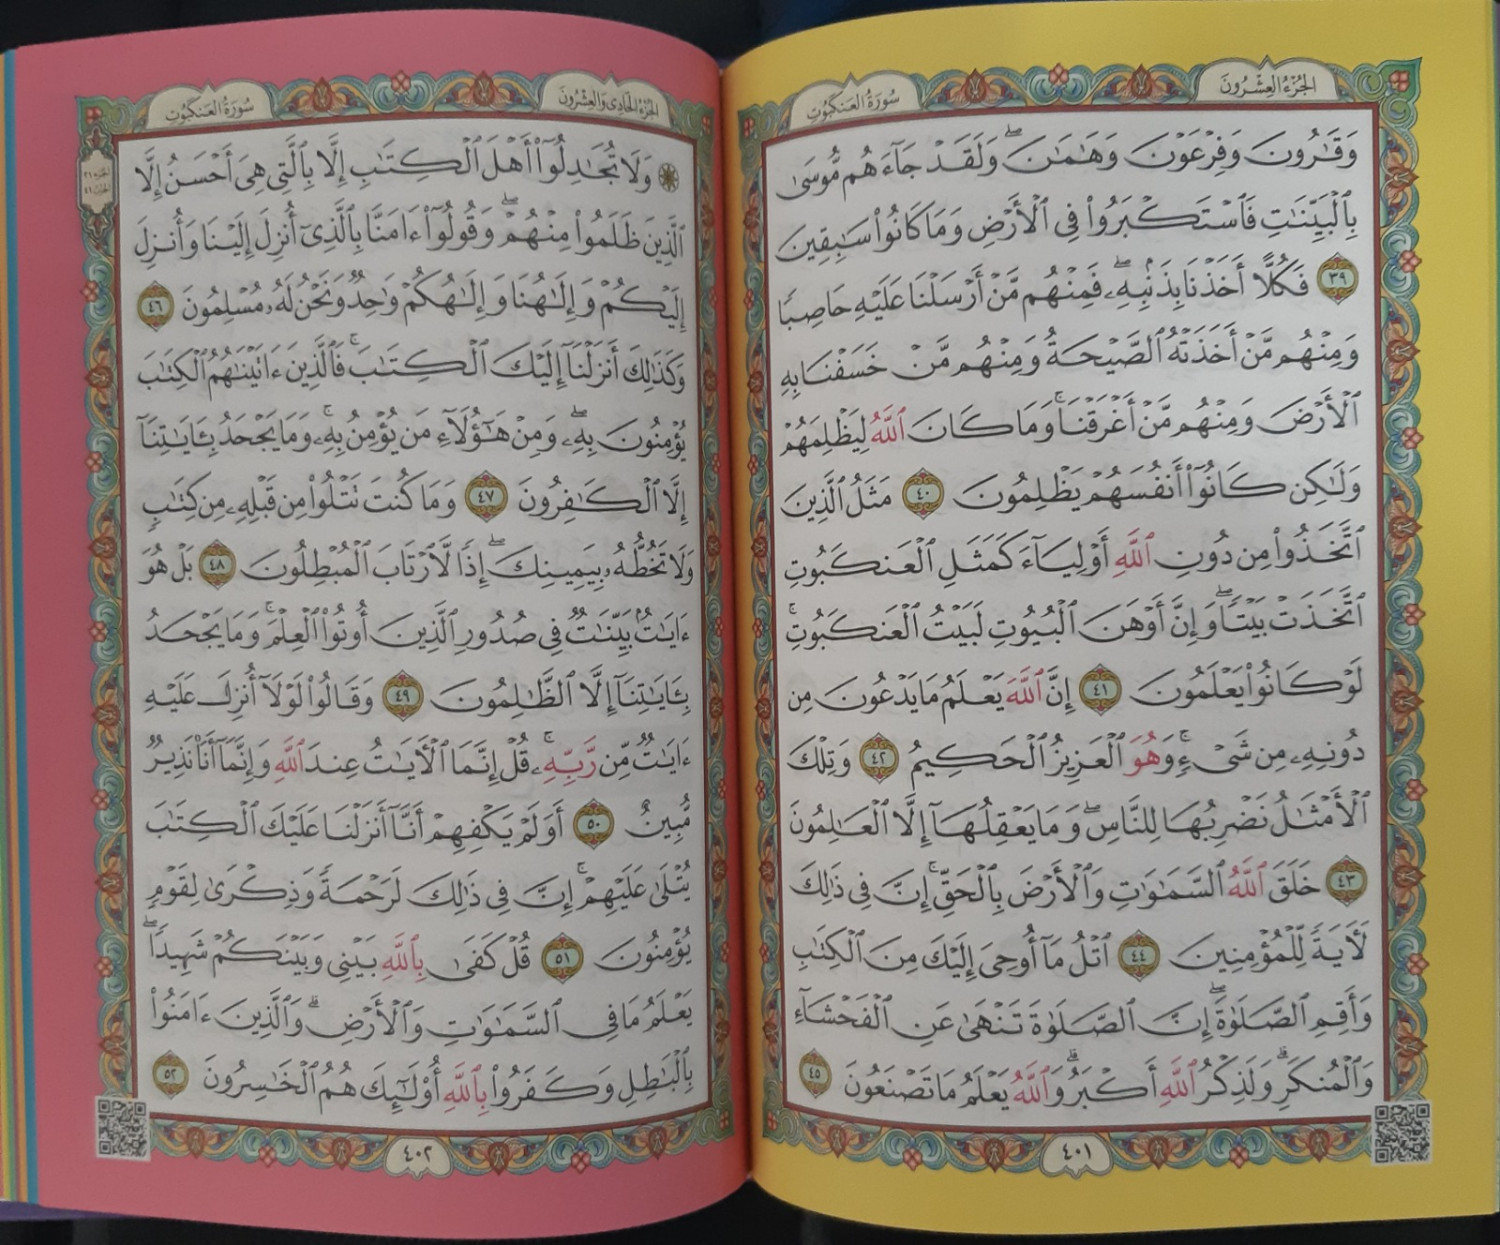 الجُزْءُ العِشْرُونَ
سُورَةُ العَنكَبُوتِ
وَقَٰرُونَ وَفِرْعَوْنَ وَهَٰمَٰنَۖ وَلَقَدْ جَآءَهُم مُّوسَىٰ
بِٱلْبَيِّنَٰتِ فَٱسْتَكْبَرُوا۟ فِى ٱلْأَرْضِ وَمَا كَانُوا۟ سَٰبِقِينَ
٣٩ فَكُلًّا أَخَذْنَا بِذَنۢبِهِۦۖ فَمِنْهُم مَّنْ أَرْسَلْنَا عَلَيْهِ حَاصِبًا
وَمِنْهُم مَّنْ أَخَذَتْهُ ٱلصَّيْحَةُ وَمِنْهُم مَّنْ خَسَفْنَا بِهِ
ٱلْأَرْضَ وَمِنْهُم مَّنْ أَغْرَقْنَاۚ وَمَا كَانَ ٱللَّهُ لِيَظْلِمَهُمْ
وَلَٰكِن كَانُوٓا۟ أَنفُسَهُمْ يَظْلِمُونَ ٤٠ مَثَلُ ٱلَّذِينَ
ٱتَّخَذُوا۟ مِن دُونِ ٱللَّهِ أَوْلِيَآءَ كَمَثَلِ ٱلْعَنكَبُوتِ
ٱتَّخَذَتْ بَيْتًاۖ وَإِنَّ أَوْهَنَ ٱلْبُيُوتِ لَبَيْتُ ٱلْعَنكَبُوتِۚ
لَوْ كَانُوا۟ يَعْلَمُونَ ٤١ إِنَّ ٱللَّهَ يَعْلَمُ مَا يَدْعُونَ مِن
دُونِهِۦ مِن شَىْءٍۚ وَهُوَ ٱلْعَزِيزُ ٱلْحَكِيمُ ٤٢ وَتِلْكَ
ٱلْأَمْثَٰلُ نَضْرِبُهَا لِلنَّاسِۖ وَمَا يَعْقِلُهَآ إِلَّا ٱلْعَٰلِمُونَ
٤٣ خَلَقَ ٱللَّهُ ٱلسَّمَٰوَٰتِ وَٱلْأَرْضَ بِٱلْحَقِّۚ إِنَّ فِى ذَٰلِكَ
لَءَايَةً لِّلْمُؤْمِنِينَ ٤٤ ٱتْلُ مَآ أُوحِىَ إِلَيْكَ مِنَ ٱلْكِتَٰبِ
وَأَقِمِ ٱلصَّلَوٰةَۖ إِنَّ ٱلصَّلَوٰةَ تَنْهَىٰ عَنِ ٱلْفَحْشَآءِ
وَٱلْمُنكَرِۗ وَلَذِكْرُ ٱللَّهِ أَكْبَرُۗ وَٱللَّهُ يَعْلَمُ مَا تَصْنَعُونَ ٤٥
٤٠١
الجُزْءُ الحَادِى وَالعِشْرُونَ
سُورَةُ العَنكَبُوتِ
الجزء ٢١
الحزب ٤١
۞ وَلَا تُجَٰدِلُوٓا۟ أَهْلَ ٱلْكِتَٰبِ إِلَّا بِٱلَّتِى هِىَ أَحْسَنُ إِلَّا
ٱلَّذِينَ ظَلَمُوا۟ مِنْهُمْۖ وَقُولُوٓا۟ ءَامَنَّا بِٱلَّذِىٓ أُنزِلَ إِلَيْنَا وَأُنزِلَ
إِلَيْكُمْ وَإِلَٰهُنَا وَإِلَٰهُكُمْ وَٰحِدٌ وَنَحْنُ لَهُۥ مُسْلِمُونَ ٤٦
وَكَذَٰلِكَ أَنزَلْنَآ إِلَيْكَ ٱلْكِتَٰبَۚ فَٱلَّذِينَ ءَاتَيْنَٰهُمُ ٱلْكِتَٰبَ
يُؤْمِنُونَ بِهِۦۖ وَمِنْ هَٰٓؤُلَآءِ مَن يُؤْمِنُ بِهِۦۚ وَمَا يَجْحَدُ بِـَٔايَٰتِنَآ
إِلَّا ٱلْكَٰفِرُونَ ٤٧ وَمَا كُنتَ تَتْلُوا۟ مِن قَبْلِهِۦ مِن كِتَٰبٍ
وَلَا تَخُطُّهُۥ بِيَمِينِكَۖ إِذًا لَّٱرْتَابَ ٱلْمُبْطِلُونَ ٤٨ بَلْ هُوَ
ءَايَٰتٌۢ بَيِّنَٰتٌ فِى صُدُورِ ٱلَّذِينَ أُوتُوا۟ ٱلْعِلْمَۚ وَمَا يَجْحَدُ
بِـَٔايَٰتِنَآ إِلَّا ٱلظَّٰلِمُونَ ٤٩ وَقَالُوا۟ لَوْلَآ أُنزِلَ عَلَيْهِ
ءَايَٰتٌ مِّن رَّبِّهِۦۚ قُلْ إِنَّمَا ٱلْءَايَٰتُ عِندَ ٱللَّهِ وَإِنَّمَآ أَنَا۠ نَذِيرٌ
مُّبِينٌ ٥٠ أَوَلَمْ يَكْفِهِمْ أَنَّآ أَنزَلْنَا عَلَيْكَ ٱلْكِتَٰبَ
يُتْلَىٰ عَلَيْهِمْۚ إِنَّ فِى ذَٰلِكَ لَرَحْمَةً وَذِكْرَىٰ لِقَوْمٍ
يُؤْمِنُونَ ٥١ قُلْ كَفَىٰ بِٱللَّهِ بَيْنِى وَبَيْنَكُمْ شَهِيدًاۖ
يَعْلَمُ مَا فِى ٱلسَّمَٰوَٰتِ وَٱلْأَرْضِۗ وَٱلَّذِينَ ءَامَنُوا۟
بِٱلْبَٰطِلِ وَكَفَرُوا۟ بِٱللَّهِ أُو۟لَٰٓئِكَ هُمُ ٱلْخَٰسِرُونَ ٥٢
٤٠٢